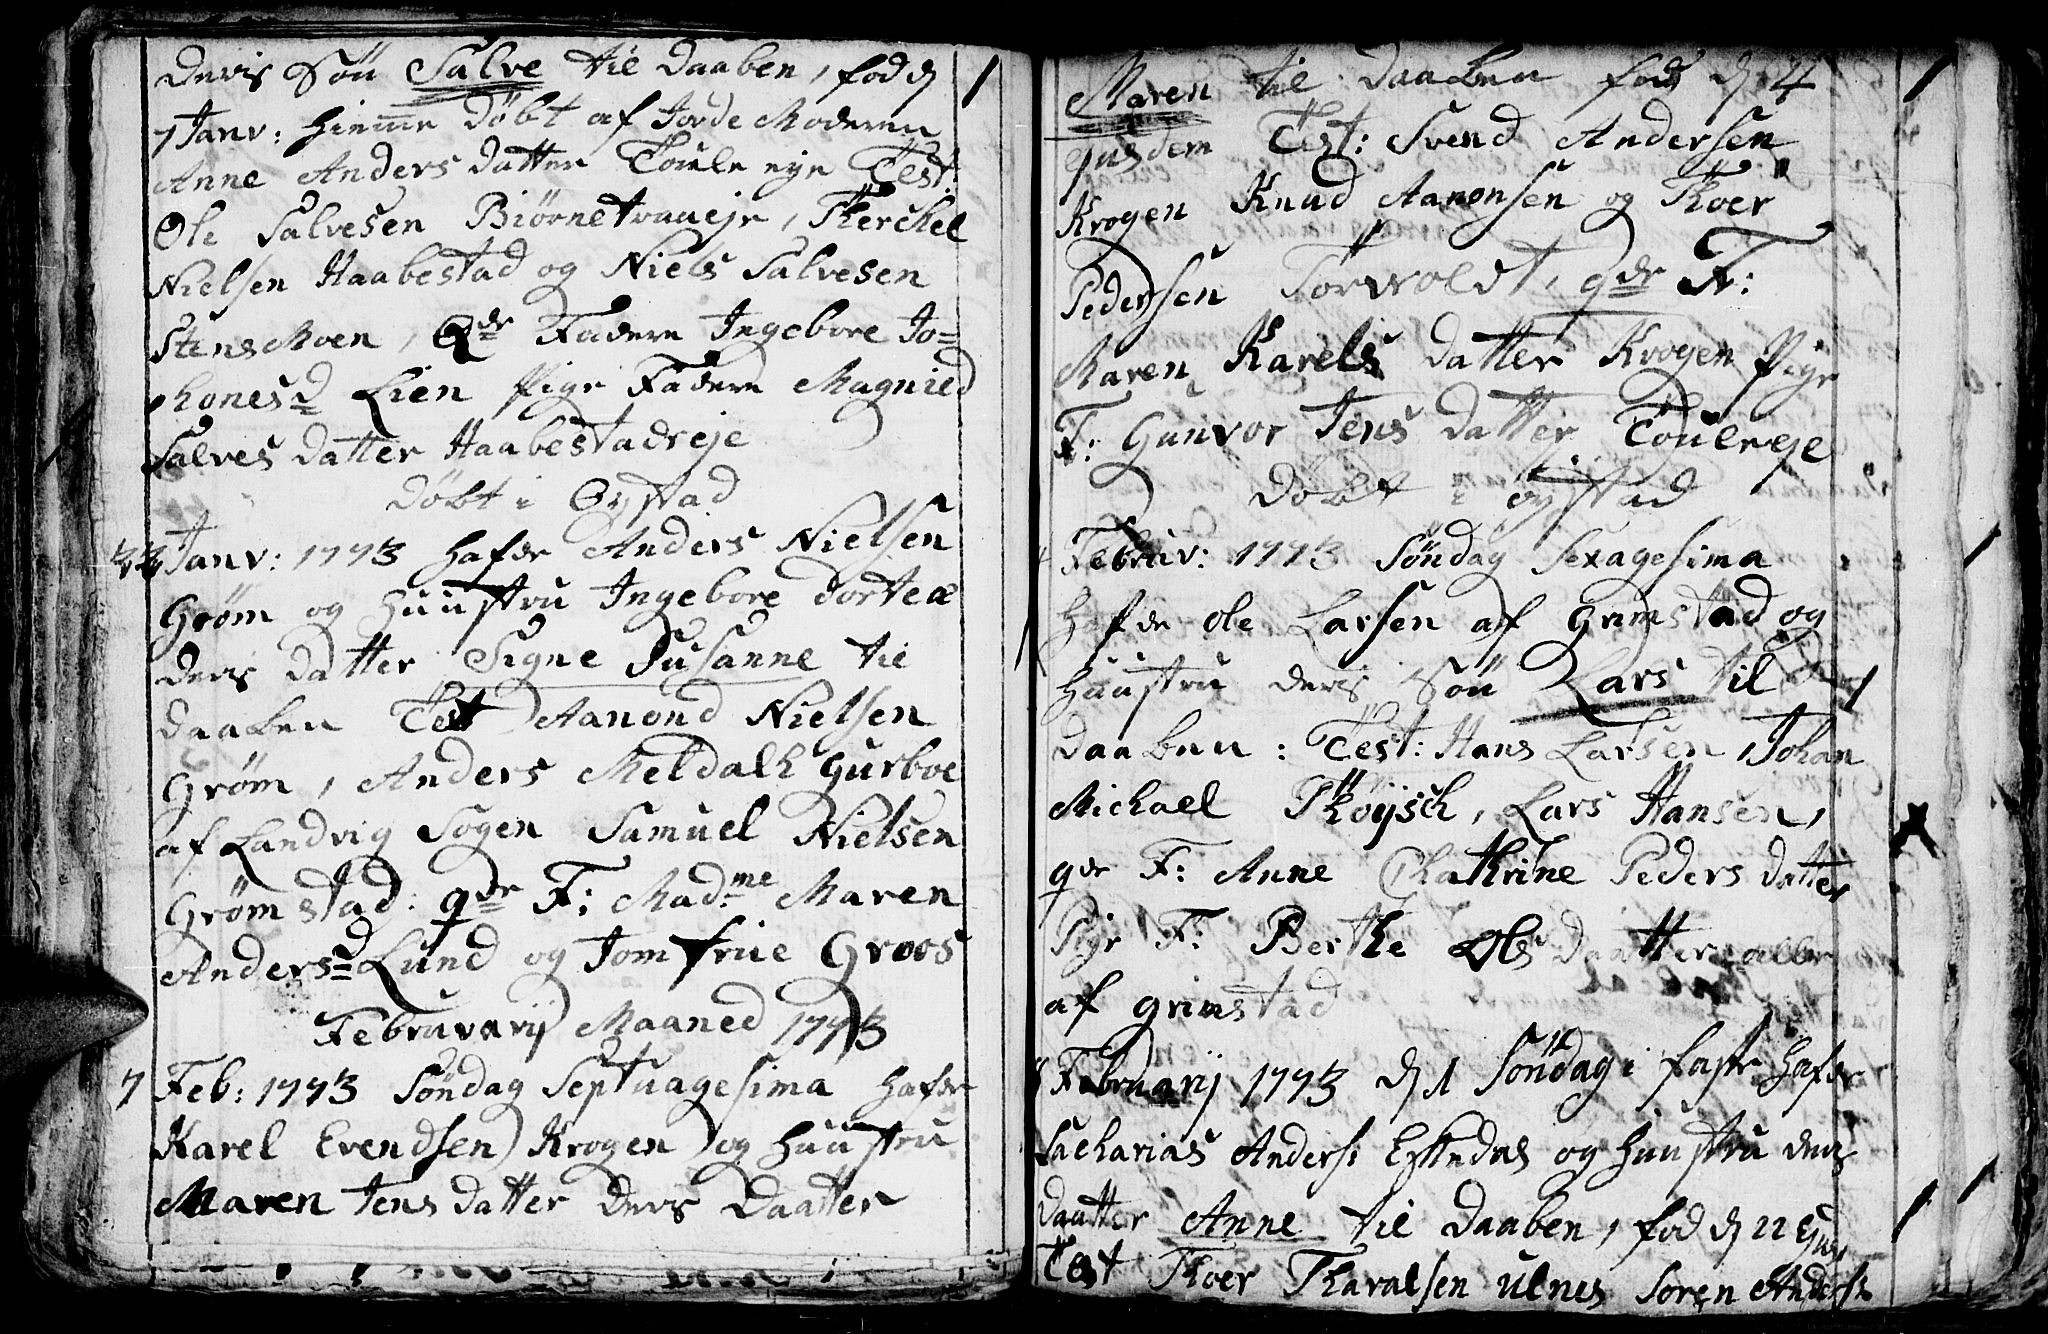 Deris Søn Salve til Daaben, fød d
7 Janv: hiemme døbt af Jorde Moderen
Anne Anders datter Touleeije Test
Ole Salvesen Biørnetraaeje, Therchel
Nielsen Haabestad og Niels Salvesen
Stensmoen, Qde Faddere Ingebore Jo=
honesd Lien Pige Faddere Magnild
Salves datter Haabestadreje
Døbt i Øystad
Janv: 1773 hafde Anders Nielsen
Grøm og huustru Ingebore Dorteæ
Deris datter Signe Susanne til
Daaben Test Aanond Nielsen
Grøm, Anders Meldalh Gurboe
af Landvig Sogen Samuel Nielsen
Grømstad: qde F: Madme Maren
Andersd Lund og Jomfrue Groos
Februvarij Maaned 1773
7 Feb: 1773 Søndag Septuagesima hafde
Karel Evendsen Krogen og huustru
Maren Jens datter Deris Daatter
Maren til Daaben fød d 4
ejusdem Test: Svend Andersen
Krogen Knud Aanonsen og Thoer
Pedersen Torwoldt, qde F:
Maren Karels datter Krogen Pige
F: Gunvor Jens datter Touleeje
Døbt i øystad
Februv: 1773 Søndag Sexagesima
hafde Ole Larsen af Grimstad og
huustru deris Søn Lars til
Daaben: Test: Hans Larsen, Johan
Michael Thøijsch, Lars Hansen,
qde F: Anne Chathrine Peders datter
Pige F: Berthe Ols daatter alle
af grimstad
Februarij 1773 d 1 Søndag i faste hafde
Sacharias Anders: og huustru deris
daatter Anne til Daaben, fød d 22
Test Thoer Tharalsen Ulnes Søren Anders: